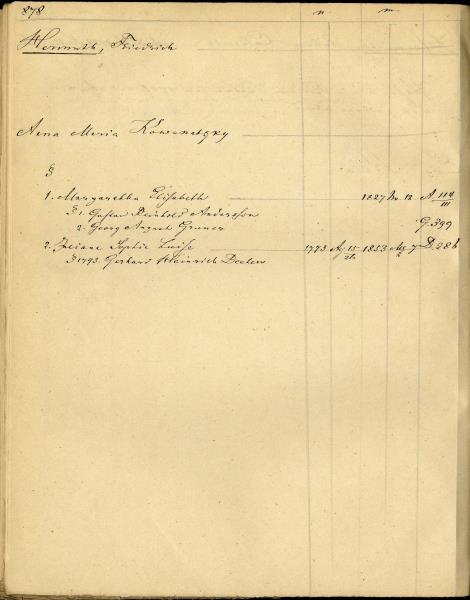 878 n m
Hermuth, Friedrich
Anna Maria Kowanetzky
§
1. Margaretha Elisabeth 1827 No 12 A 114/III
§ 1. Gustav Reinhold Andersson
2. Georg August Gruner G. 399
2. Juliane Sophie Luise 1773 Ag 15/26 1853 7 D. 286
§ 1793. Gerhard Heinrich Deelen